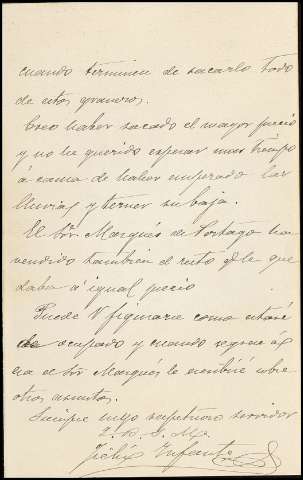 cuando terminen de sacarlo todo
de estos graneros.
Creo haber sacado el mayor precio
y no he querido esperar mas tiempo
á causa de haber empezado las
lluvias y temer su baja.
El Sr. Marqués de Portago ha
vendido tambien el resto q.e le que
daba á igual precio
Puede V figurarse como estaré
de ocupado y cuando regrese á
el Sr Marqués le escribiré sobre
otros asuntos.
Siempre suyo respetuoso servidor
Q. B. S. M.
Félix Infante